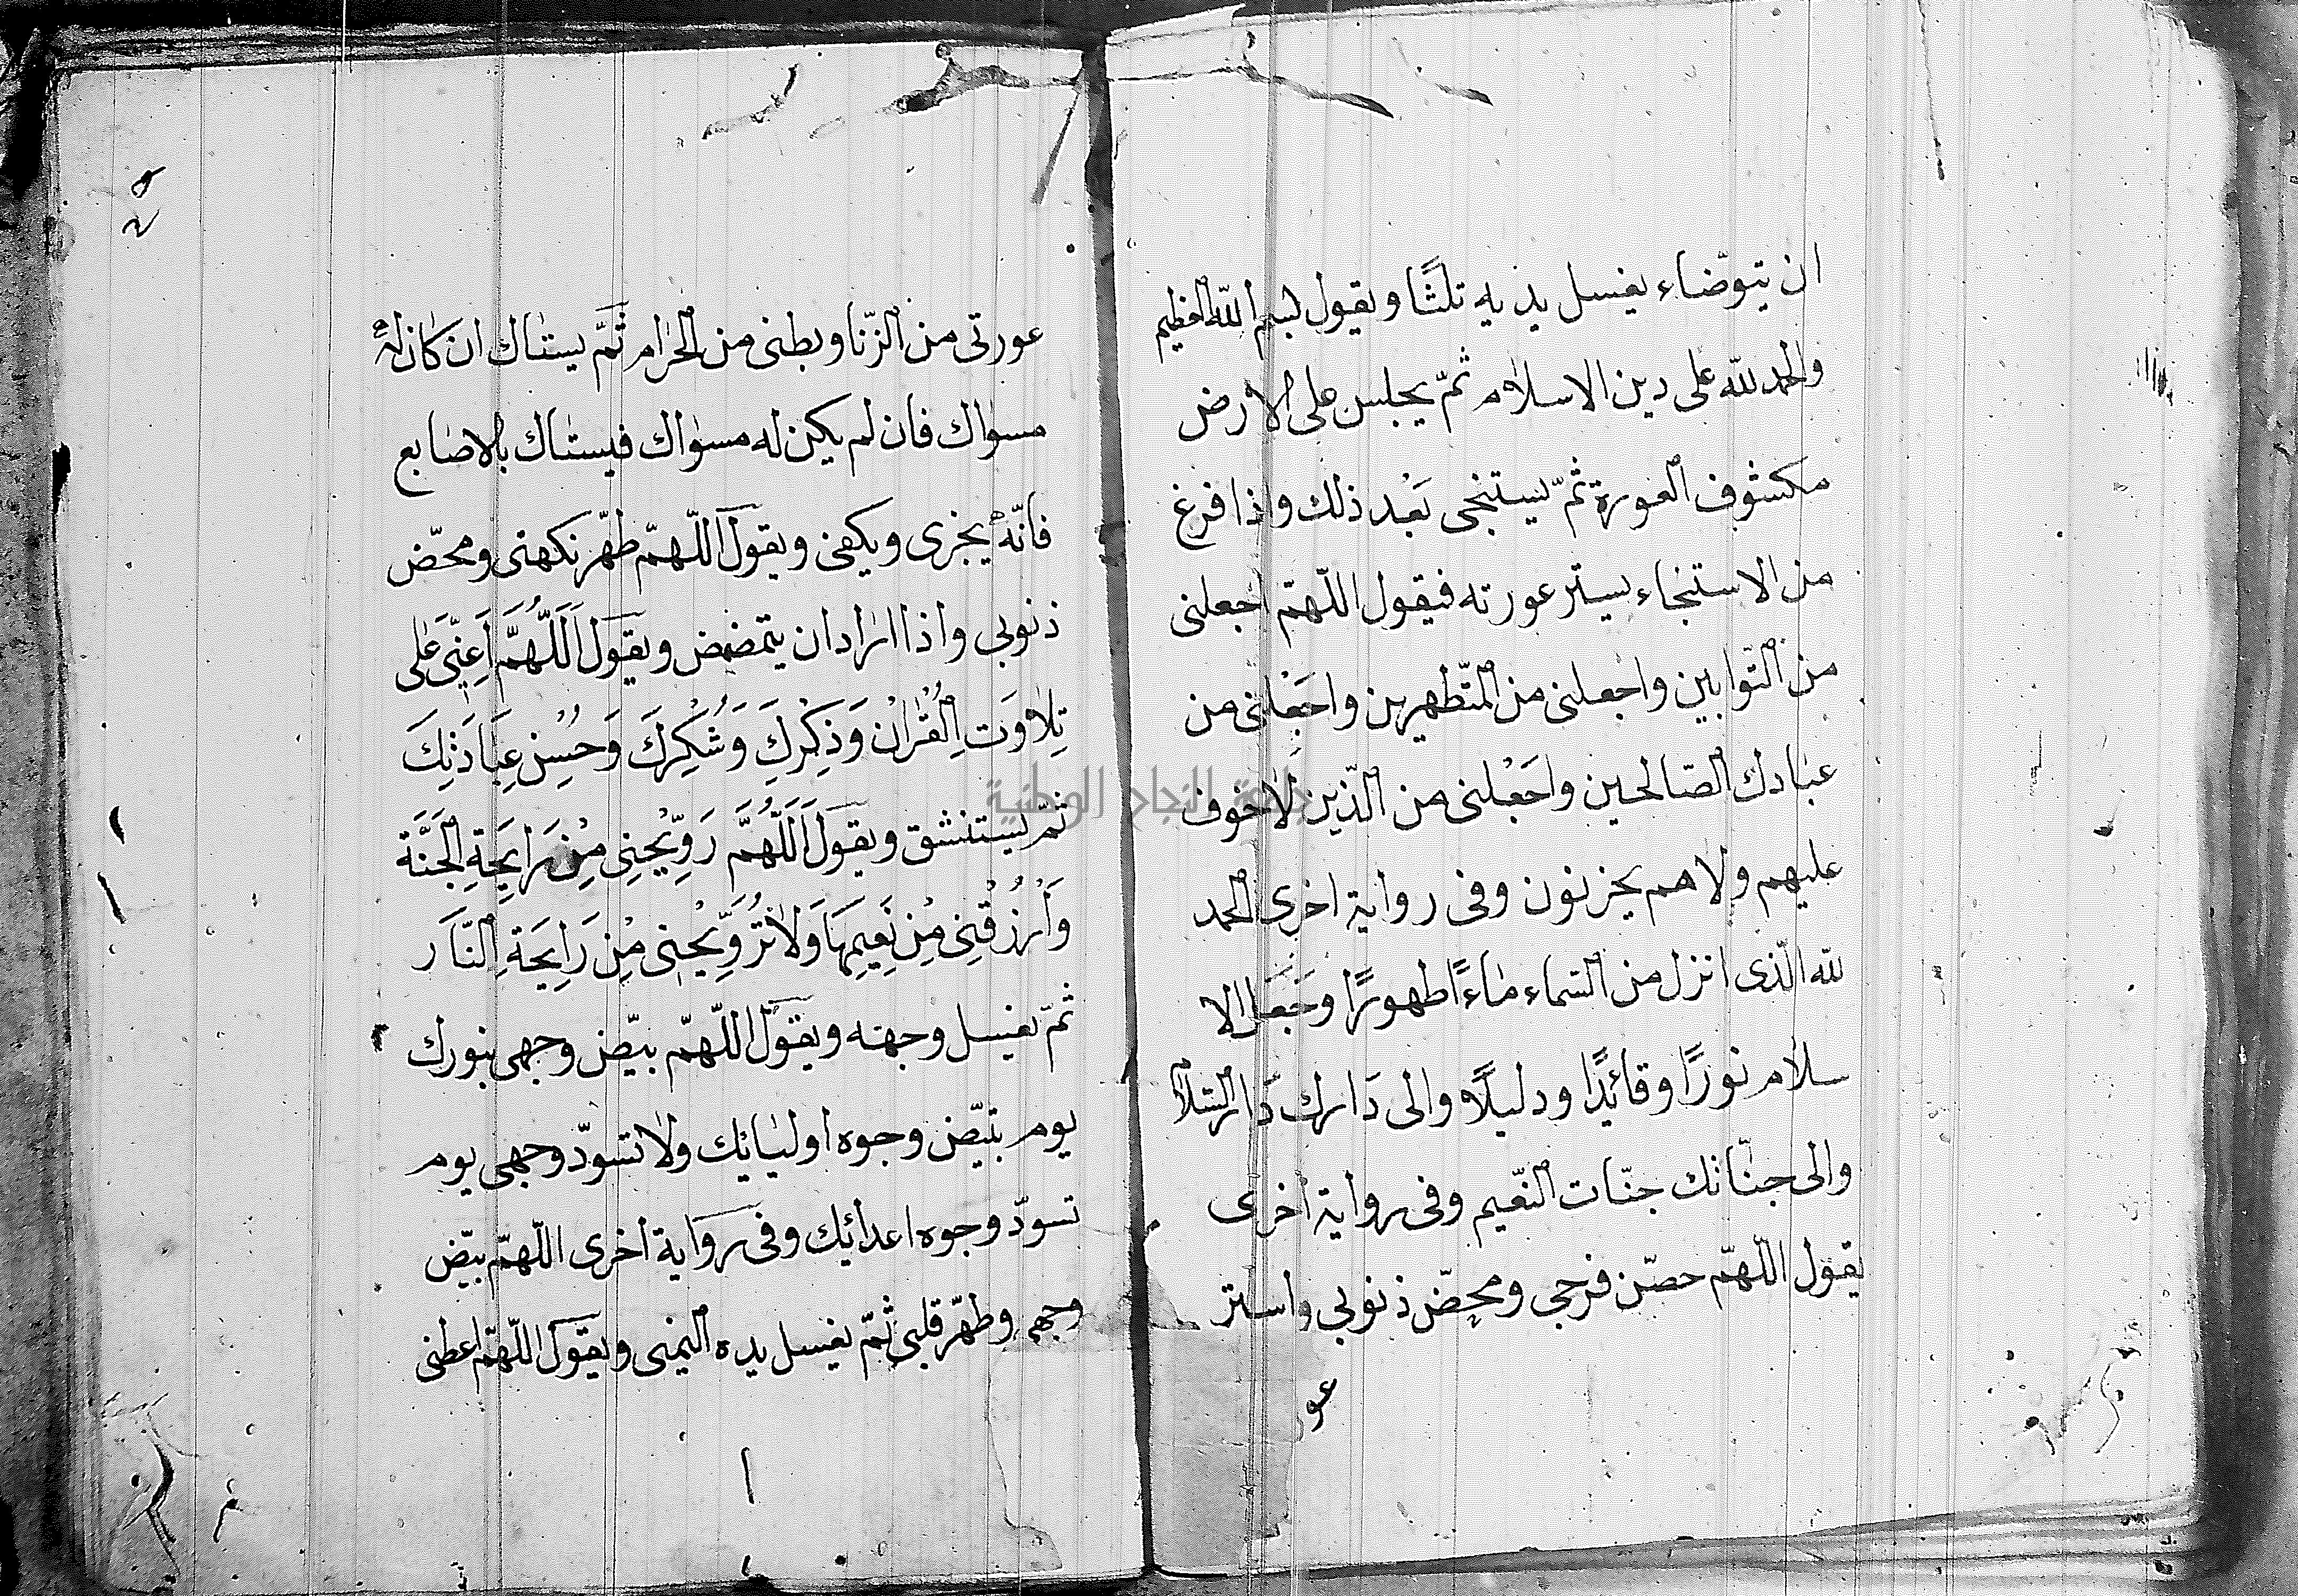 ان يتوضاء يغسل يديه ثلثًا ويقول بسم الله العظيم
والحمد لله على دين الاسلام ثمّ يجلس على الارض
مكشوف العورة ثمّ يستنجى بَعْد ذلك واذا فرغ
من الاستنجاء يستر عورته فيقول اللّهمّ اجعلنى
من التّوابين واجعلنى من المتّطهرين واجَعْلنى من
عبادك الصّالحين واجَعْلنى من الّذين لا خوف
عليهم ولا هم يحزنون وفى رواية اخرى الحمد
لله الّذى انزل من السّماء مٰاءً طهورًا وجَعَل الا
سلام نورًا وقائدًا ودليلًا والى دَارك دَار السّلام
والى جنّاتك جنّات النّعيم وفى رواية اخرى
يقول اللّهمّ حصّن فرجى ومحّض ذنوبى واستر
عور
عورتى من الزّنا وبطنى من الحرام ثمّ يستاك ان كان لهُ
مسواك فان لم يكن له مسواك فيستاك بالاصابع
فانّهُ يجزى ويكفى ويقول اللّهمّ طهّر نكهتى ومحّض
ذنوبى واذا اراد ان يتمضمض ويقول اَللَّهُمَّ اَعِنِّى عَلٰى
تِلاوَت اِلْقُرْانْ وَذِكْرِكَ وَشُكْرِكَ وَحُسْن عِبَادَتِكَ
ثمّ يستنشق ويقول اَللَّهُمَّ رَوِّيْحْنِى مِنْ رَايِحَةِ الْجَنَّة
وَارْزُقْنِى مِنْ نَعِيمِهَا وَلاٰتُرَوِّيْحْنِى مِنْ رَايِحَة اِلنَّار
ثمّ يغسل وجهه ويقول اللّهمّ بيّض وجهى بنورك
يوم تبيّض وجوه اوليائك ولا تسوّد وجهى يوم
تسوّد وجوه اعدائك وفى رواية اخرى اللّهمّ بيّض
وجهى وطهّر قلبى ثمّ يغسل يده اليمنى ويقول اللّهمّ اعطنى
جامعة النجاح الوطنية